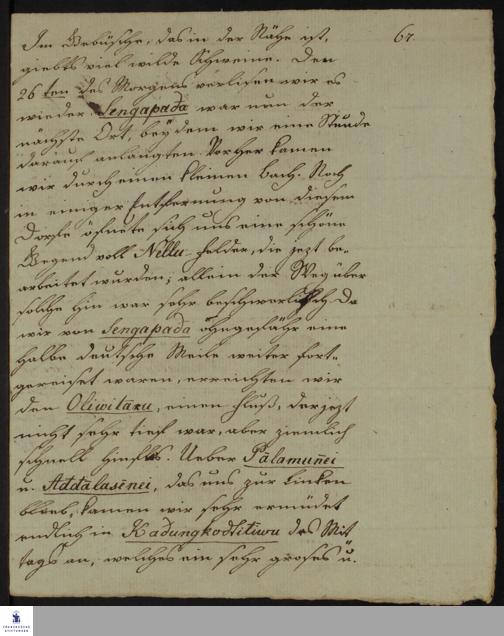 67.
Im Gebüsche, das in der Nähe ist,
giebts viel wilde Schweine. Den
26ten des Morgens verließen wir es
wieder. Sengapada war nun der
nächste Ort, bey dem wir eine Stunde
darauf anlangten. Vorher kamen
wir durch einen kleinen Bach. Noch
in einiger Entfernung von diesem
Dorfe öfnete sich uns eine schöne
Gegend voll Nellu-felder, die jezt be-
arbeitet wurden; allein der Weg über
solche hin war sehr beschwerlich. Da
wir von Sengapada ohngefähr eine
halbe deutsche Meile weiter fort-
gereiset waren, erreichten wir
den Oliwitaru, einen Fluß, der jezt
nicht sehr tief war, aber ziemlich
schnell hinfloß. Ueber Palamunei
u. Addalasenei, das uns zur Linken
blieb, kamen wir sehr ermüdet
endlich in Kadungkodtitiwu des Mit
tags an, welches ein sehr großes u.
FRANCKESCHE
STIFTUNGEN